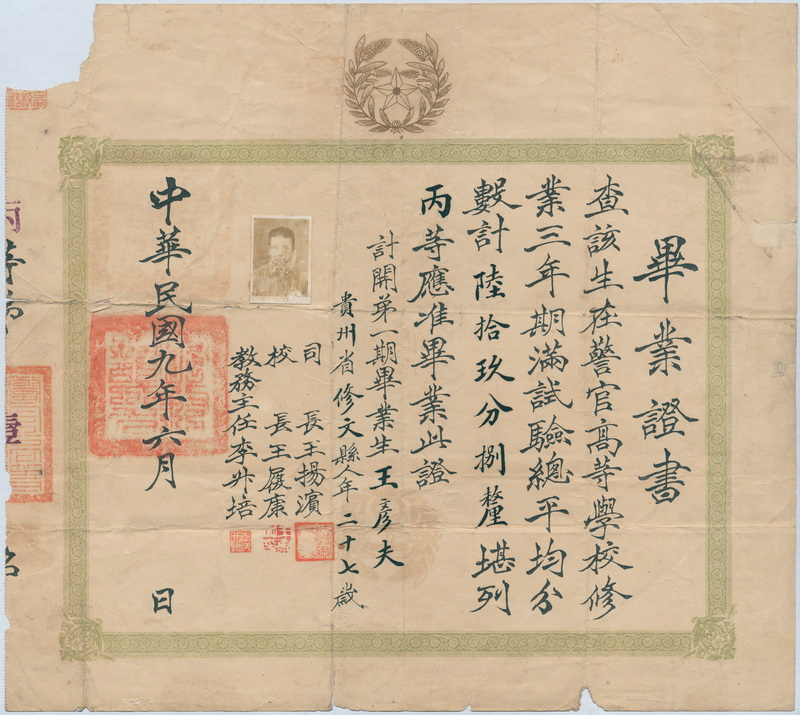 畢業證書
查該生在警官高等學校修
業三年期滿試驗總平均分
數計陸拾玖分捌釐堪列
丙等應准畢業此證
計開第一期畢業生王彥夫
貴州省修文縣人年二十七歲
司長王揚濱
校長王履康
教務主任李升培
中華民國九年六月 日
丙等